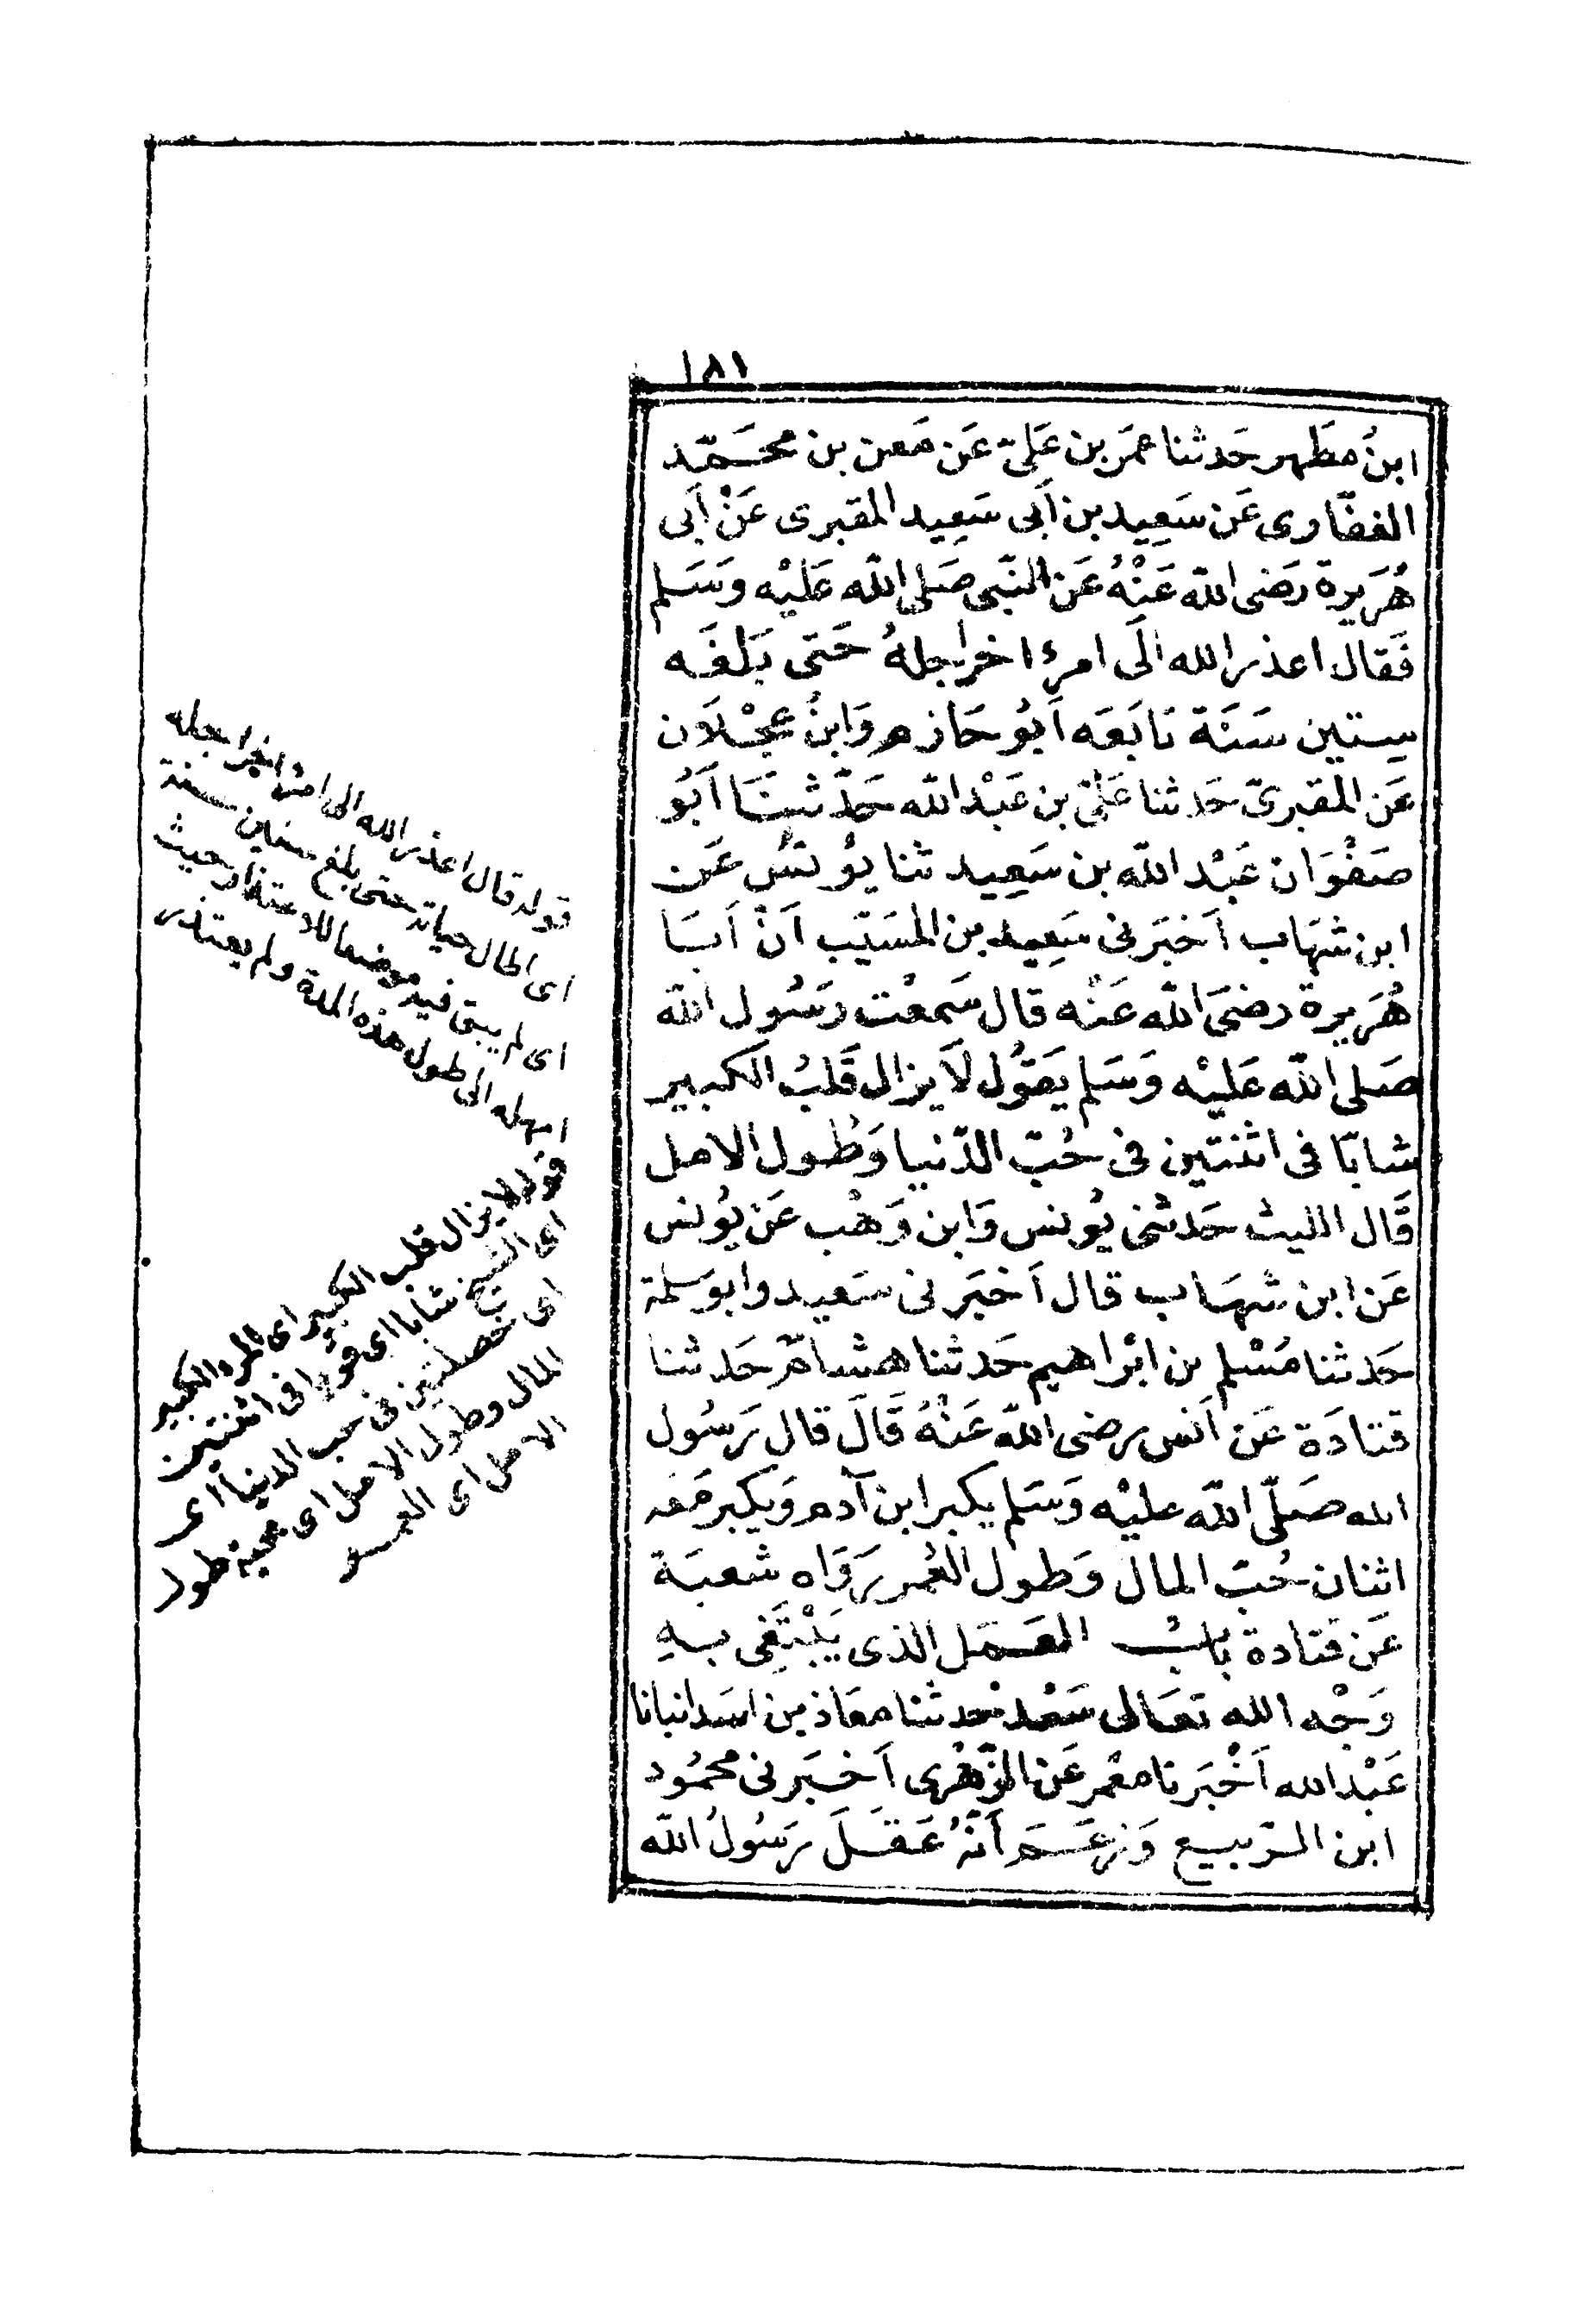 ١٨١
ابنُ مطَهر حَدثنا عمَر بن عَلىّ عَن مَعن بن محَمّد
الغفّارى عَن سَعِيد بن أَبى سَعِيد المقبرى عَنْ أبى
هُرَيرة رَضى الله عَنْهُ عَن النّبى صَلى الله عَليْه وَسَلم
فَقال اعذر الله الَى امرء اخر اجلهُ حَتى بَلغَه
سِتين سَنَة تابَعَه اَبُو حَازم وَابنُ عجْلَان
عَن المقبرىّ حَدثنا عَلىّ بن عَبْد الله حَدّثنَا اَبُو
صَفْوَان عَبْد الله بن سَعِيد ثنا يُونسُ عَن
ابن شهَاب اَخبَرنى سَعِيد بن المسَيّب اَنّ اَبَا
هُرَيرة رضىَ الله عَنْه قال سَمعْت رَسُول الله
صَلى الله عَليْه وَسَلم يَقوُل لَا يزال قَلبُ الكَبير
شابّا فى اثنتَين فى حُبّ الدّنيا وَطُول الامل
قَال الليث حَدثنى يُونس وَابن وَهْب عَنْ يُونس
عَن ابن شهَاب قال اَخبَرنى سَعيد وابو سَلمة
حَدثنا مُسْلم بن ابْراهيم حَدثنا هشامٌ حَدثنا
قتادَة عَن اَنس رضى الله عَنْهُ قَالَ قال رَسُول
الله صَلّى الله عليْه وَسَلم يكبر ابن آدم وَيكبر مَعَه
اثنان حُبّ المال وَطول العُمر رَوَاه شعبَة
عَن قتادة بابُ العَمَل الذى يَبْتَغى بهِ
وَجْه الله تعَالى سَعْد حدثنا معَاذ بن اسَد انبانا
عَبْد الله اَخْبَرنا معْمر عَن الزّهْرى اَخبَرنى محمُود
ابن الرّبيع وَزعَمَ اَنّهُ عَقَلَ رَسُولُ الله
قوله قال اعذر الله الى امرئ اخر اجله
اى اطال حياته حتى بلغ ستين سنة
اى لم يبق فيه موضعا للاعتذار حيث
امهله الى طول هذه المدة ولم يعتذر
قوله لا يزال قلب الكبير اى المرء الكبير
اى الشيخ شابا اى قويا فى اثنتين
اى خصلتين فى حب الدنيا اى
المال وطول الامل اى محبة طول
الامل اى العمر